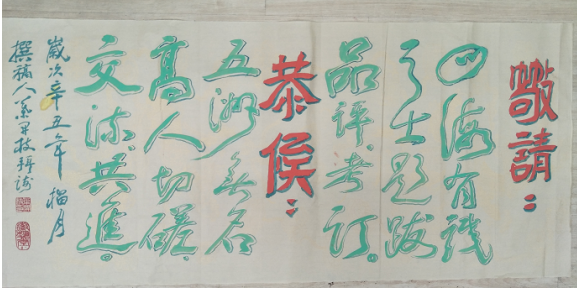 敬請：
四海有識
之士題跋
品評考訂。
恭候：
五洲無名
高人切磋。
交流共進。
歲次辛丑年榴月
撰稿人